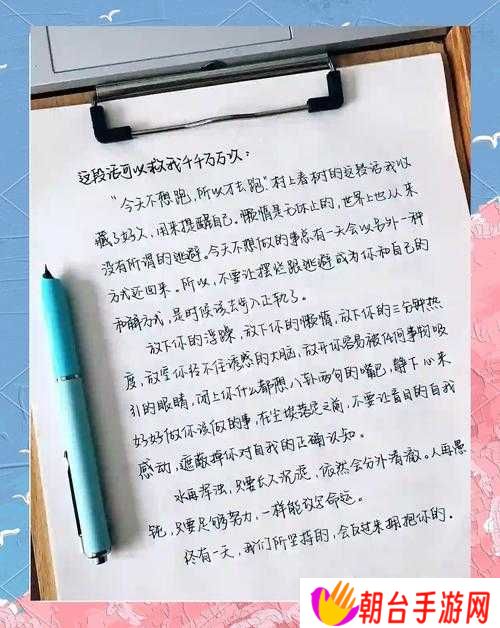 这段话可以救我千千万万次：
“今天不想跑，所以才去跑”村上春树的这段话我收
藏了好久，用来提醒自己。懒惰是无休止的，世界上也从来
没有所谓的逃避。今天不想做的事总有一天会以另外一种
方式还回来。所以，不要让摆烂跟逃避成为你和自己的
和解方式，是时候该去步入正轨了。
放下你的浮躁，放下你的懒惰，放下你的三分钟热
度，放空你经不住诱惑的大脑，放开你容易被任何事物吸
引的眼睛，闭上你什么都想八卦两句的嘴巴，静下心来
好好做你该做的事，在尘埃落定之前，不要让盲目的自我
感动，遮蔽掉你对自我的正确认知。
水再浑浊，只要长久沉淀，依然会分外清澈。人再愚
钝，只要足够努力，一样能改写命运。
终有一天，我们所坚持的，会反过来拥抱你的。
朝台手游网